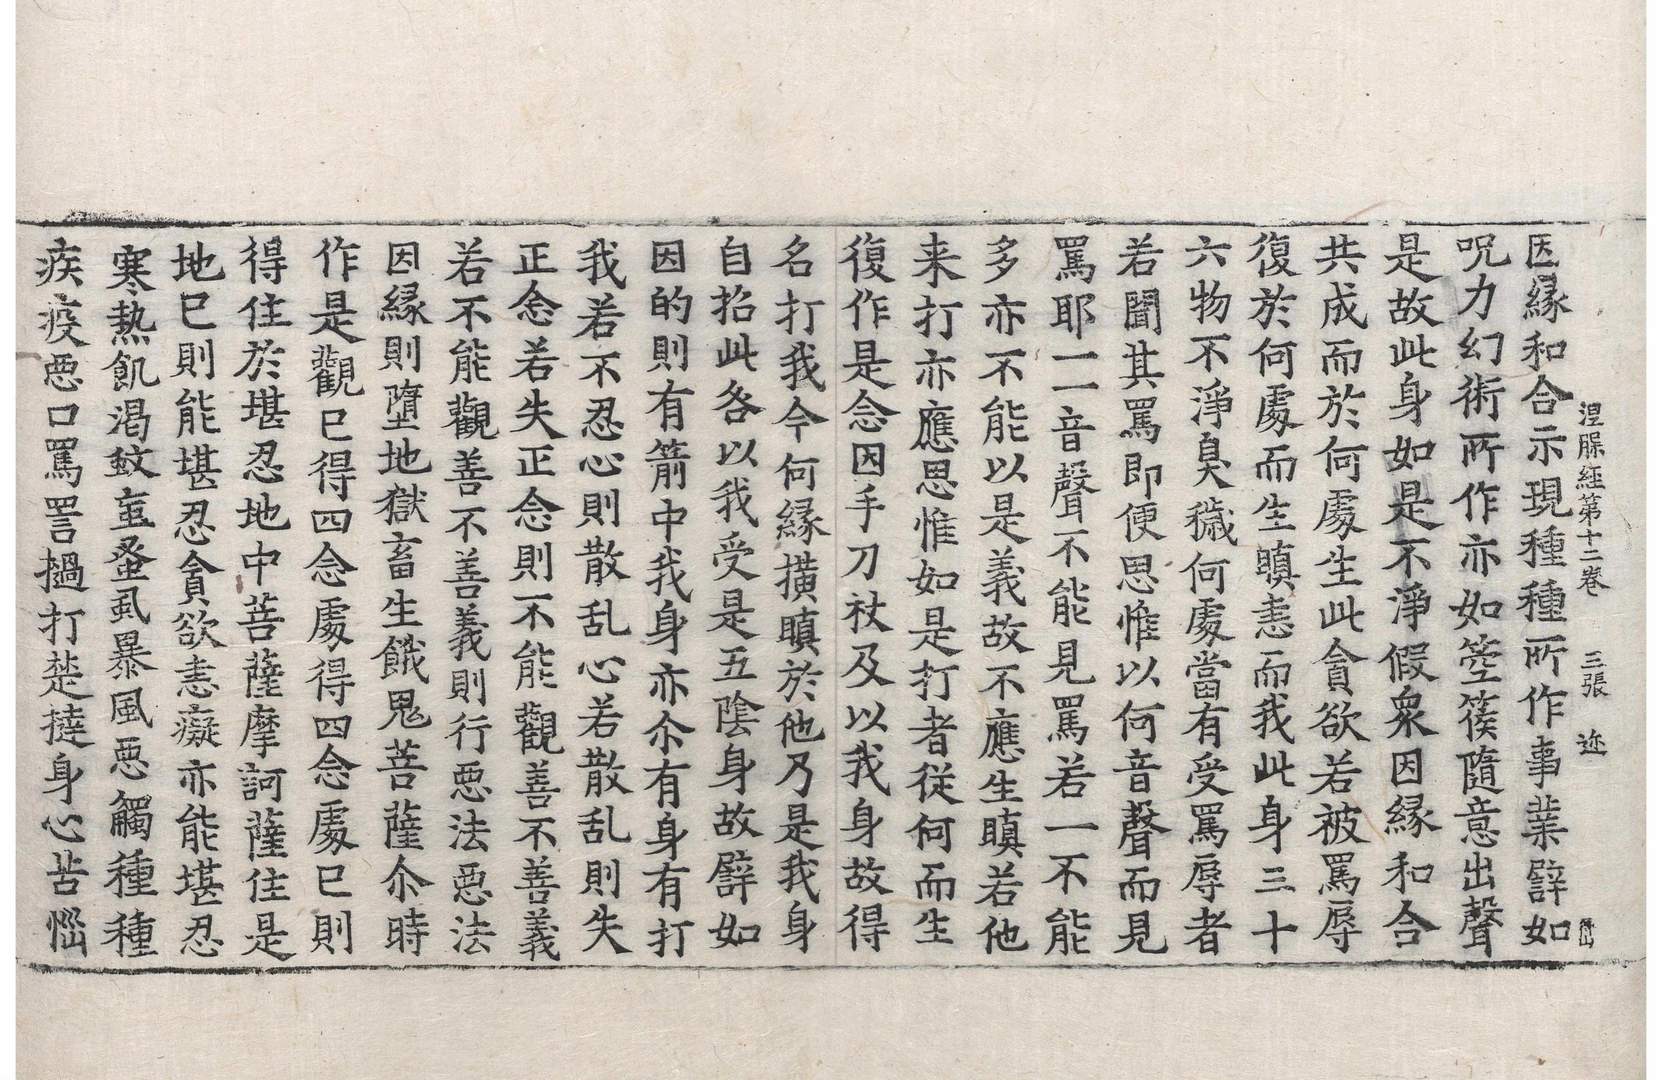 涅槃経第十二巻 三張 迹
因縁和合示現種種所作事業譬如
呪力幻術所作亦如箜篌隨意出聲
是故此身如是不淨假衆因縁和合
共成而於何處生此貪欲若被罵辱
復於何處而生瞋恚而我此身三十
六物不淨臭穢何處當有受罵辱者
若聞其罵即便思惟以何音聲而見
罵耶一一音聲不能見罵若一不能
多亦不能以是義故不應生瞋若他
来打亦應思惟如是打者從何而生
復作是念因手刀杖及以我身故得
名打我今何縁横瞋於他乃是我身
自招此咎以我受是五陰身故譬如
因的則有箭中我身亦尒有身有打
我若不忍心則散乱心若散乱則失
正念若失正念則不能觀善不善義
若不能觀善不善義則行惡法惡法
因縁則墮地獄畜生餓鬼菩薩尒時
作是觀已得四念處得四念處已則
得住於堪忍地中菩薩摩訶薩住是
地已則能堪忍貪欲恚癡亦能堪忍
寒熱飢渴蚊䖟蚤虱暴風惡觸種種
疾疫惡口罵詈撾打楚撻身心苦惱